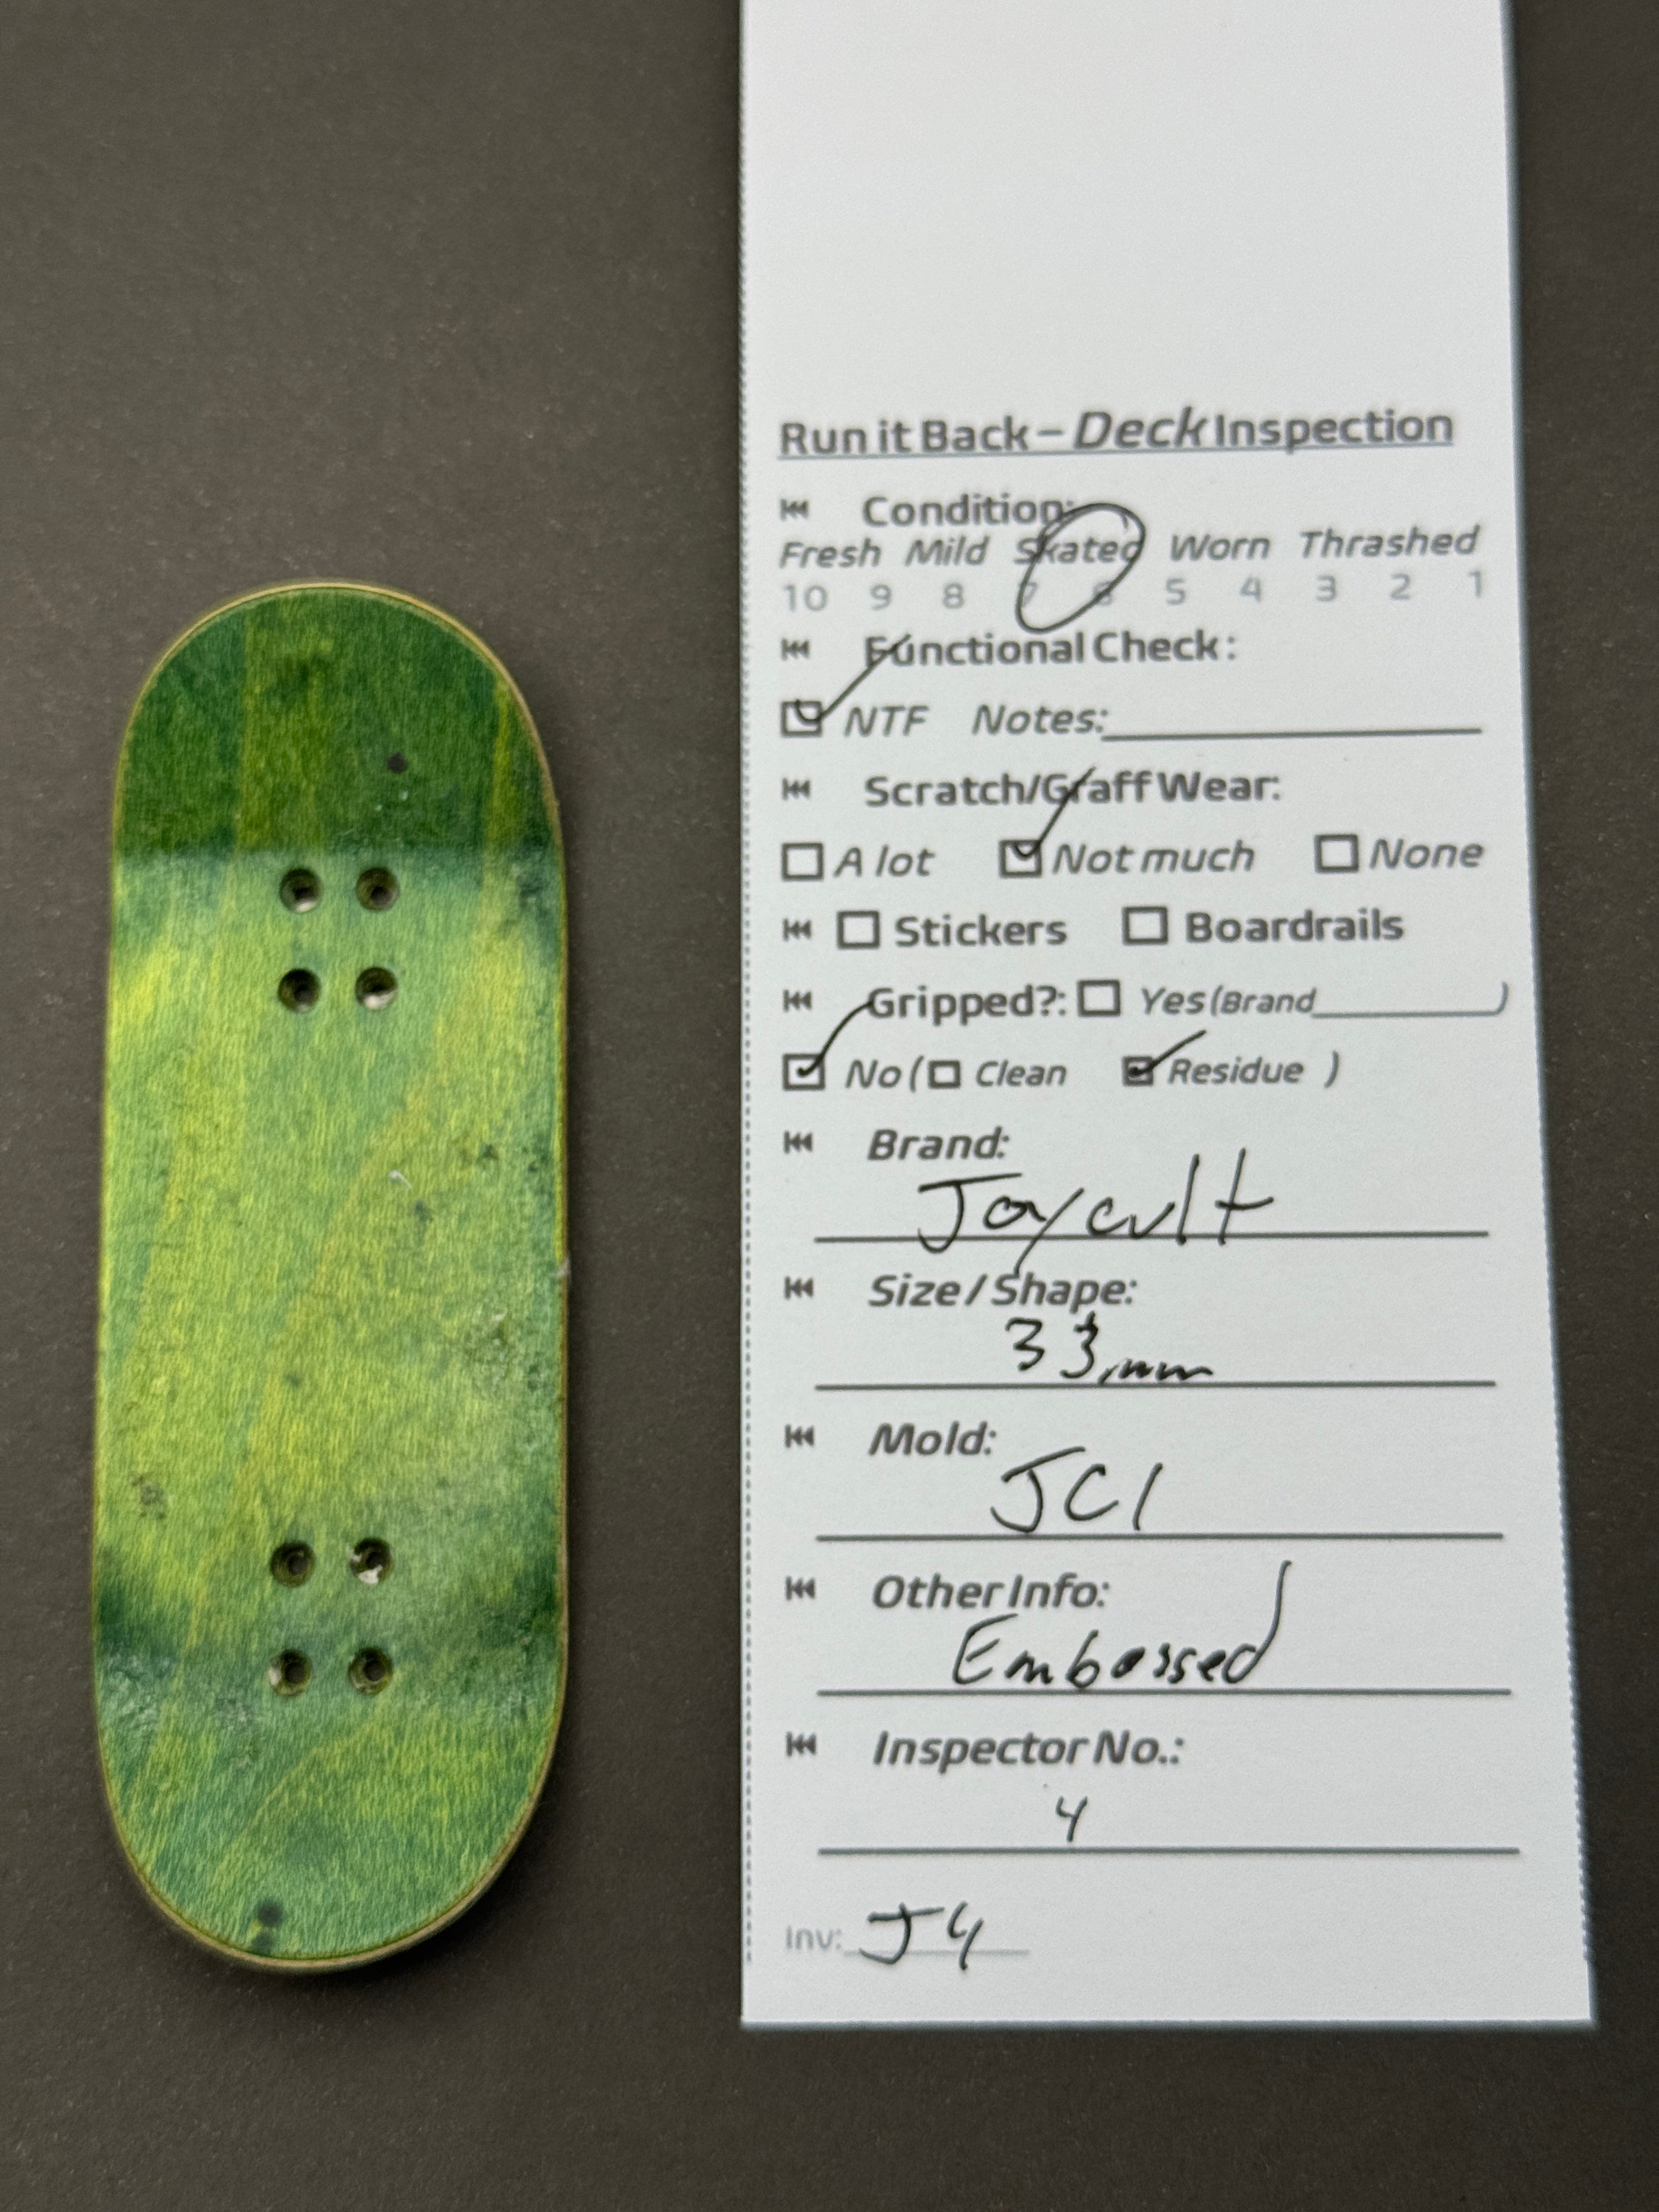 Run it Back – Deck Inspection
Condition:
Fresh Mild Skated Worn Thrashed
10 9 8 7 6 5 4 3 2 1
Functional Check:
NTF Notes:
Scratch/Graff Wear:
A lot Not much None
Stickers Boardrails
Gripped?: Yes (Brand )
No ( Clean Residue )
Brand:
Joycult
Size / Shape:
33mm
Mold:
JC1
Other Info:
Embossed
Inspector No.:
4
Inv: J4